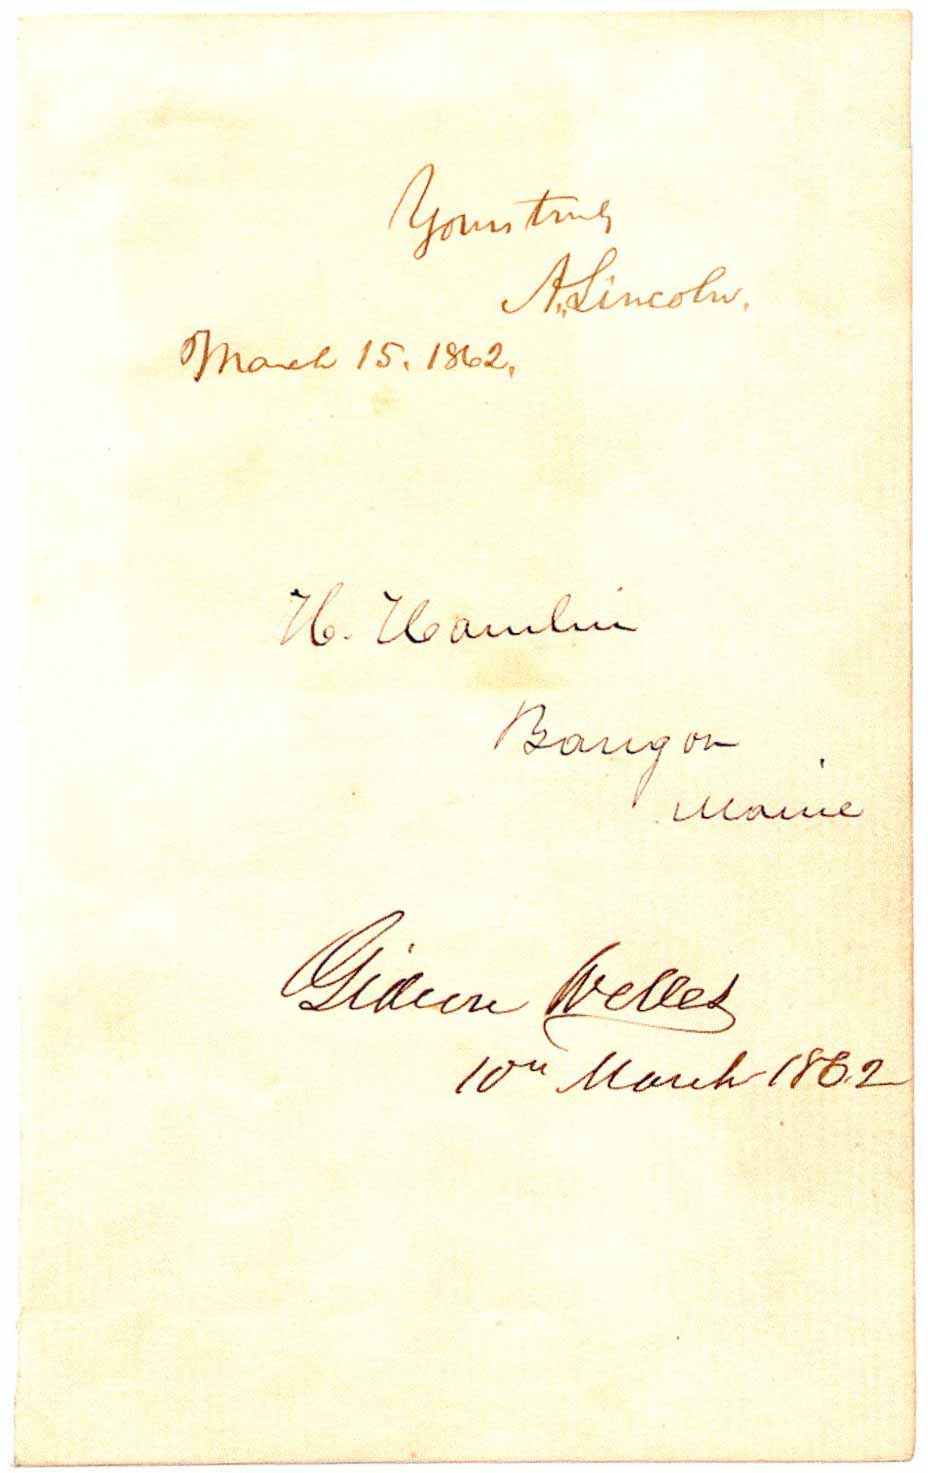 Yours truly
A. Lincoln.
March 15. 1862.
H. Hamlin
Bangor
Maine
Gideon Welles
10th March 1862